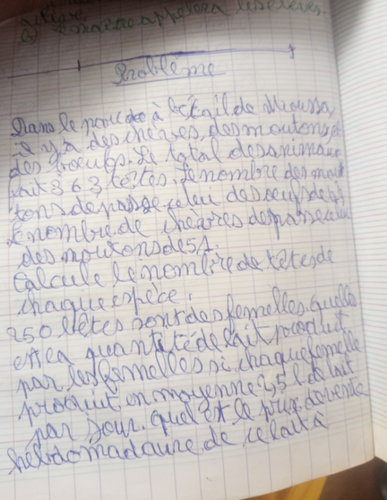 Problème
Dans le parc de à bétail de Moussa,
il y a des chèvres, des moutons et
des boeufs. Le total des animaux
fait 363 têtes. Le nombre des mou
tons depasse celui des boeufs de
Le nombre de chèvres depasse celui
des moutons de 51.
Calcule le nombre de têtes de
chaque espèce.
250 têtes sont des femelles. Quelle
est la quantité de lait produit
par les femelles si chaque femelle
produit en moyenne 2,5 l de lait
par jour. Quel est le prix de vente
hebdomadaire de ce lait à